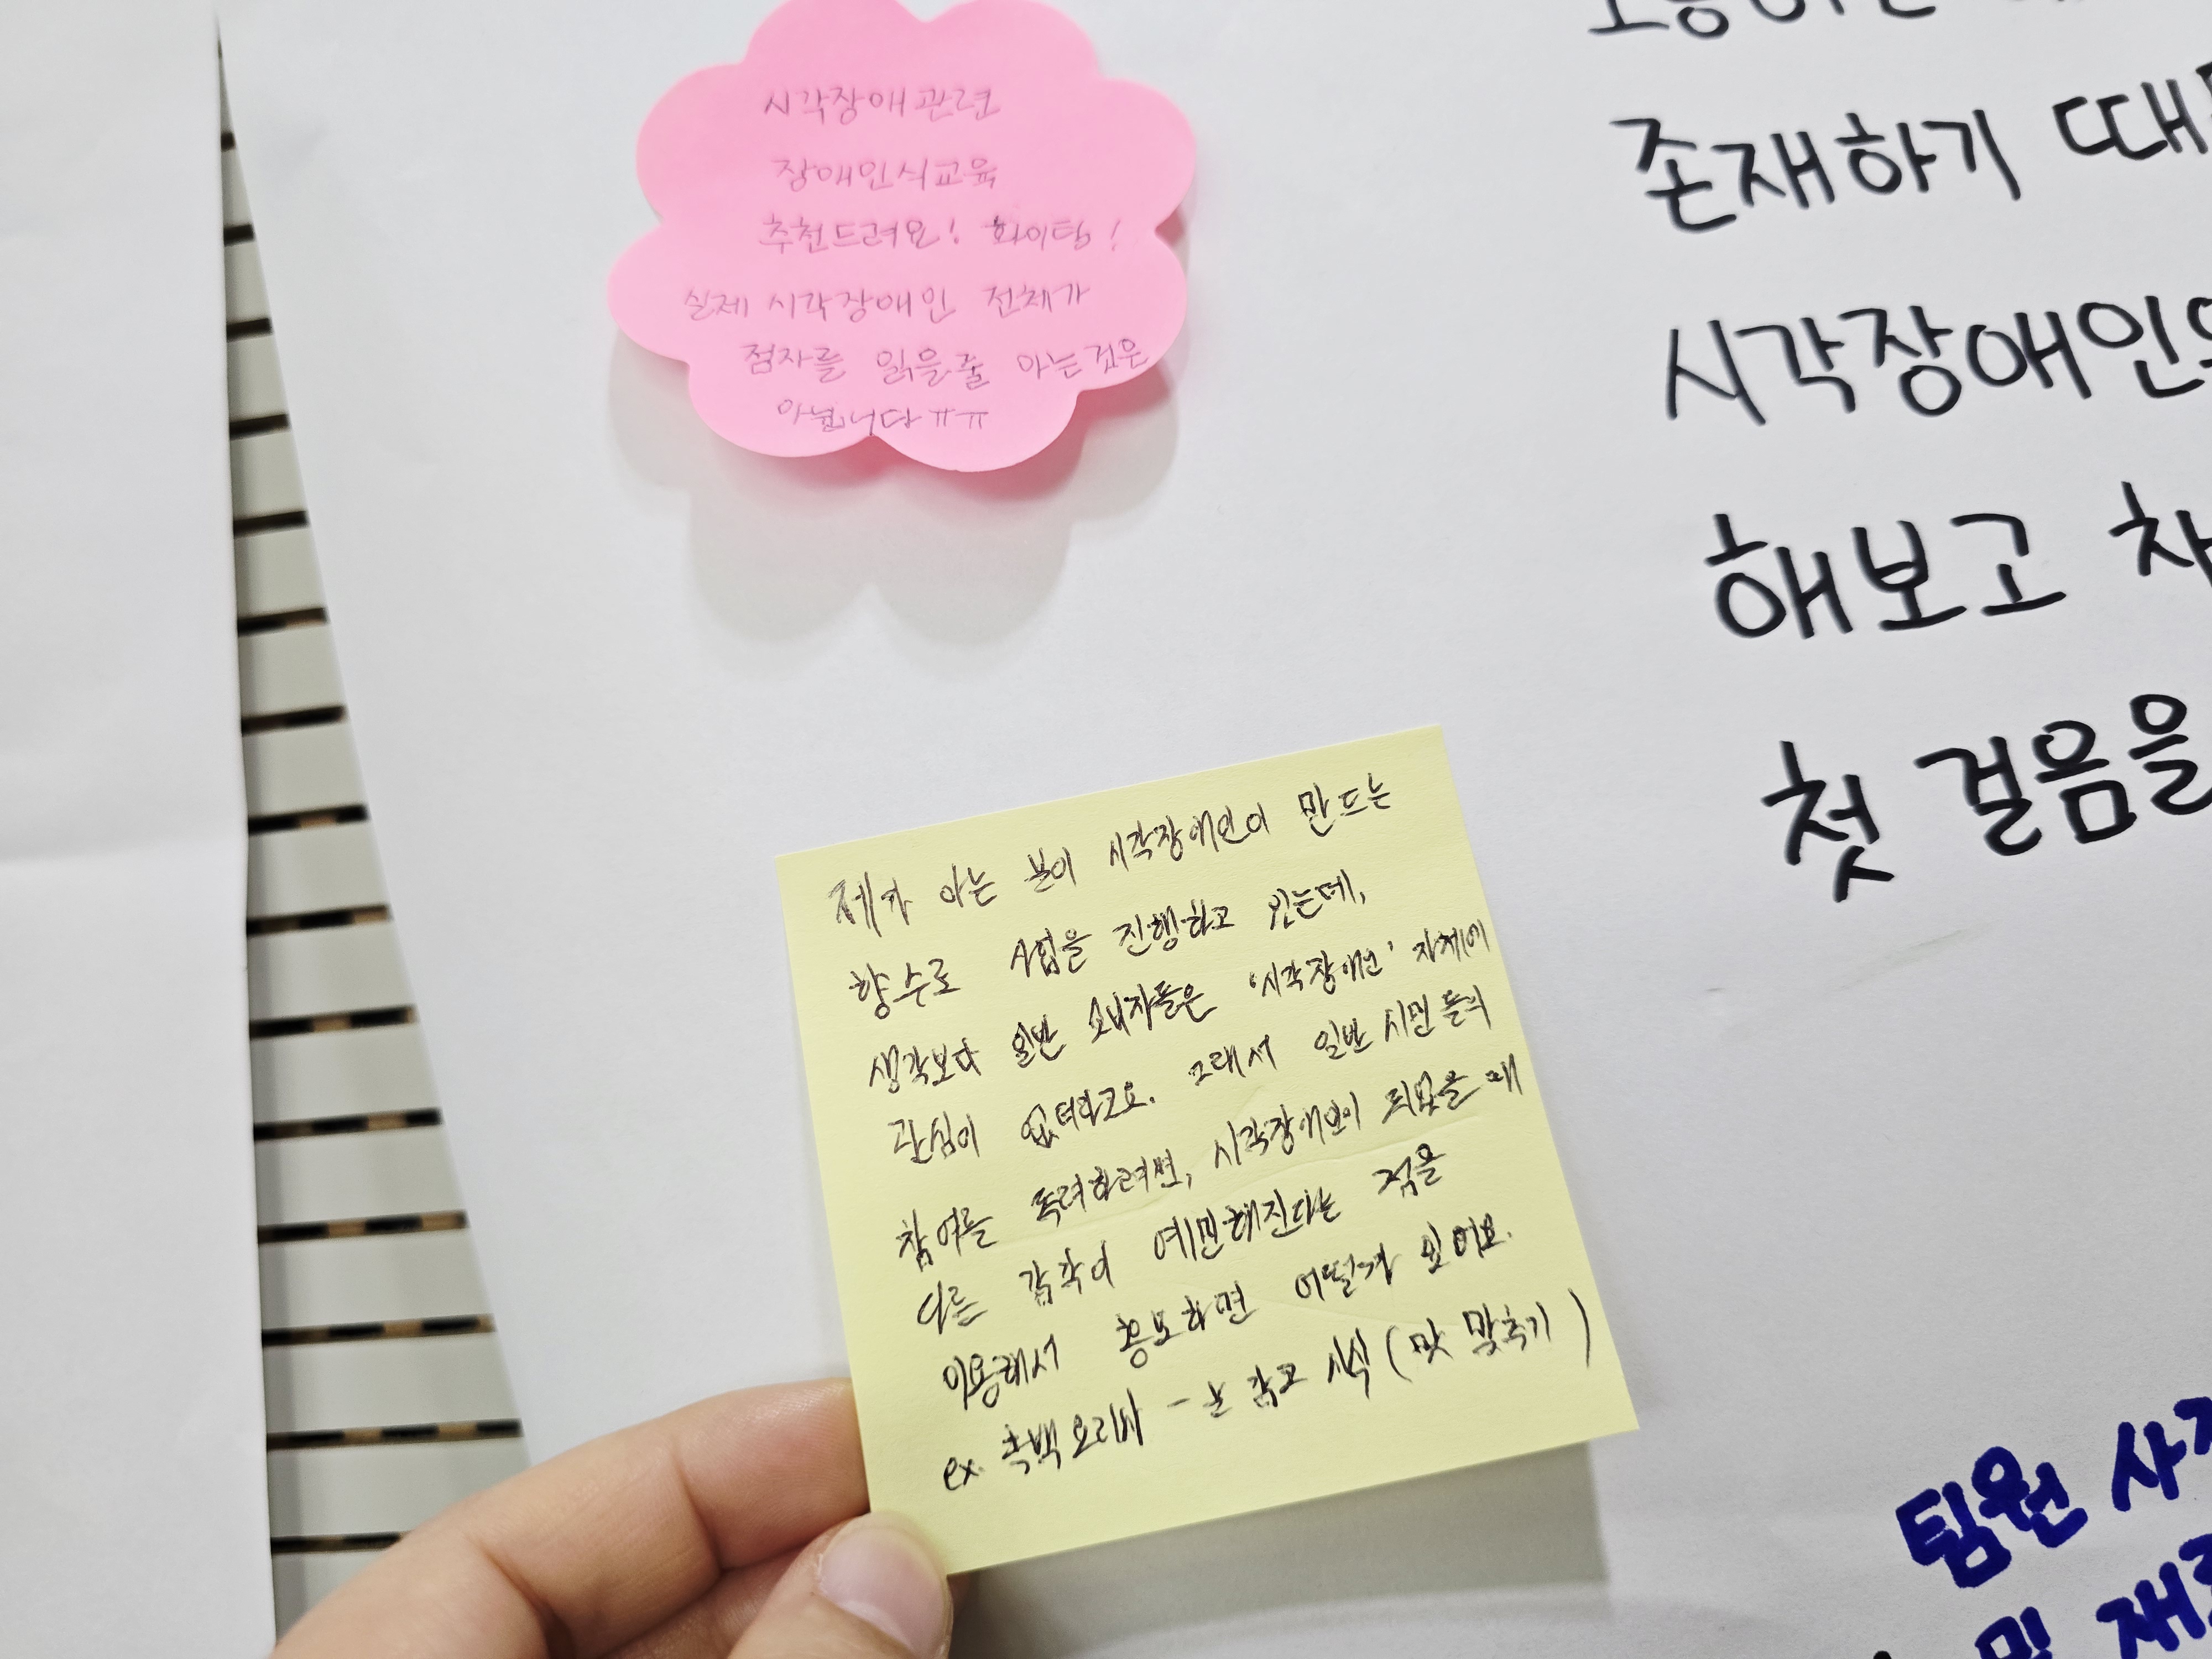 시각장애관련
장애인식교육
추천드려요! 화이팅!
실제 시각장애인 전체가
점자를 읽을줄 아는것은
아닙니다ㅠㅠ
제가 아는 분이 시각장애인이 만드는
향수로 사업을 진행하고 있는데,
생각보다 일반 소비자들은 '시각장애인' 자체에
관심이 없더라고요. 그래서 일반 시민들의
참여를 독려하려면, 시각장애인이 되었을 때
다른 감각이 예민해진다는 점을
이용해서 홍보하면 어떨까 싶어요.
ex. 흑백요리사 - 눈 감고 시식 (맛 맞추기)
존재하기
시각장애인
해보고
첫 걸음을
팀원
및